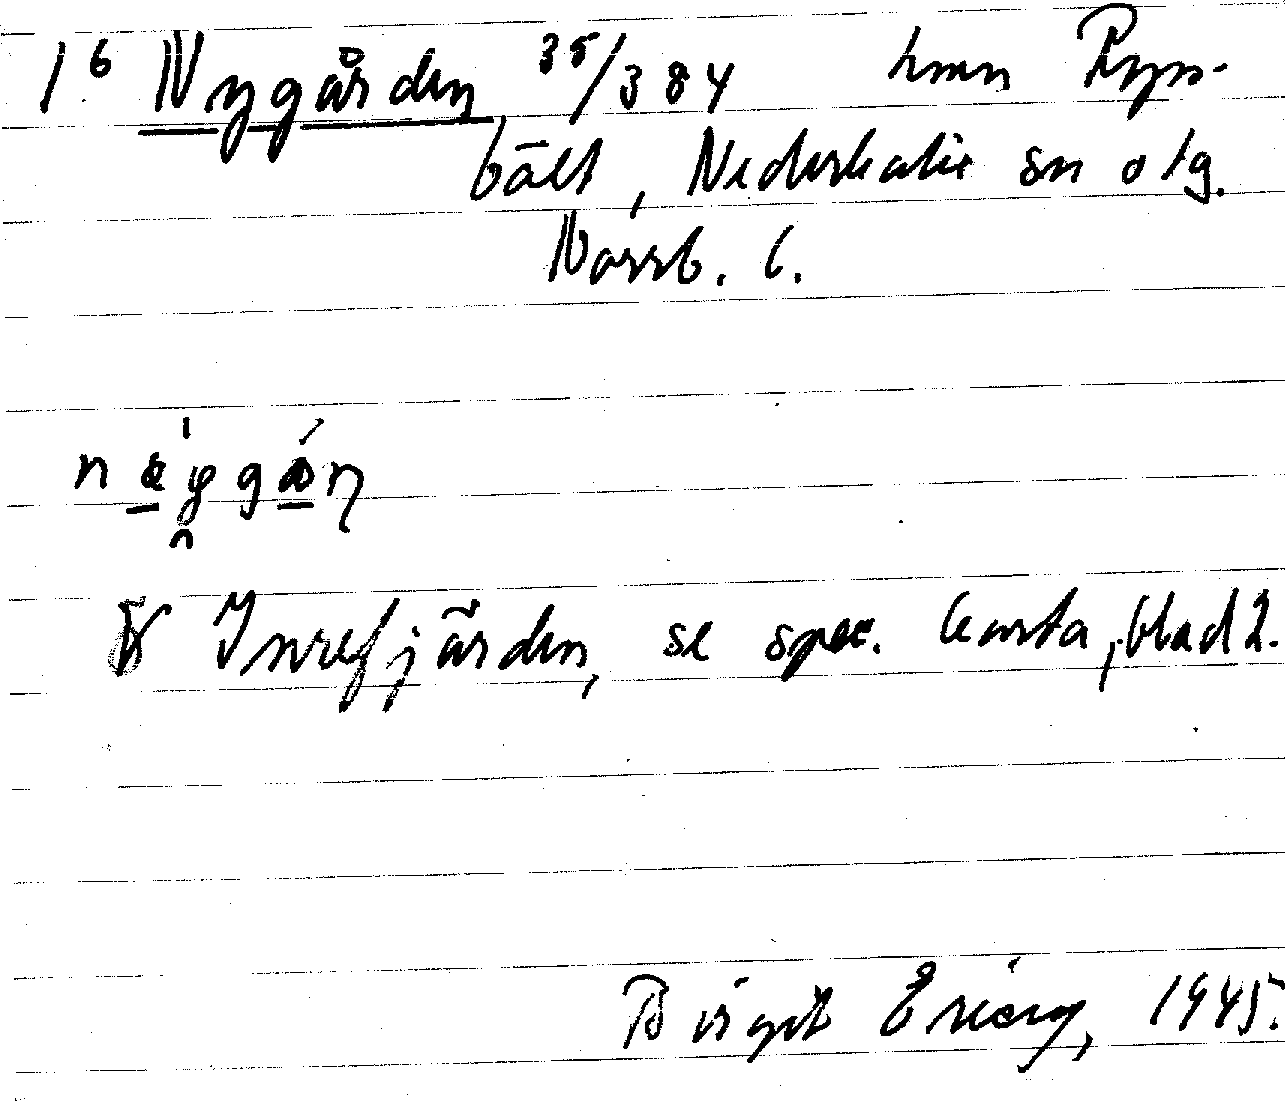 1⁶ Nygården ³⁵/384 hmn Ryss-
bält, Nederkalix sn o tg.
Norrb. l.
Innefjärden, se spec. karta, blad 2.
Birgit Ericzy, 1945.